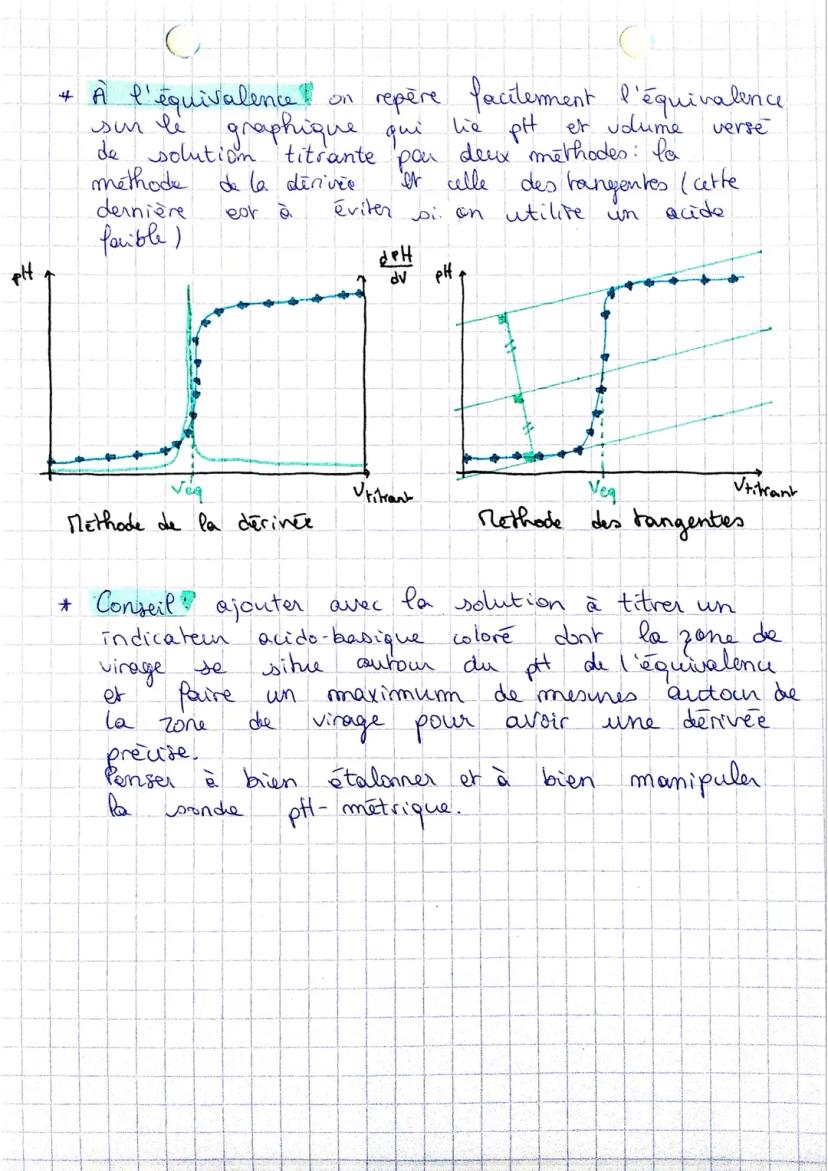 * À l'équivalence : on repère facilement l'équivalence
sur le graphique qui lie pH et volume versé
de solution titrante par deux méthodes : la
méthode de la dérivée et celle des tangentes (cette
dernière est à éviter si on utilise un acide
faible)
pH
dpH
dV
pH
Veq
Vtitrant
Veq
Vtitrant
Méthode de la dérivée
Méthode des tangentes
* Conseil : ajouter avec la solution à titrer un
indicateur acido-basique coloré dont la zone de
virage se situe autour du pH de l'équivalence
et faire un maximum de mesures autour de
la zone de virage pour avoir une dérivée
précise.
Penser à bien étalonner et à bien manipuler
la sonde pH-métrique.